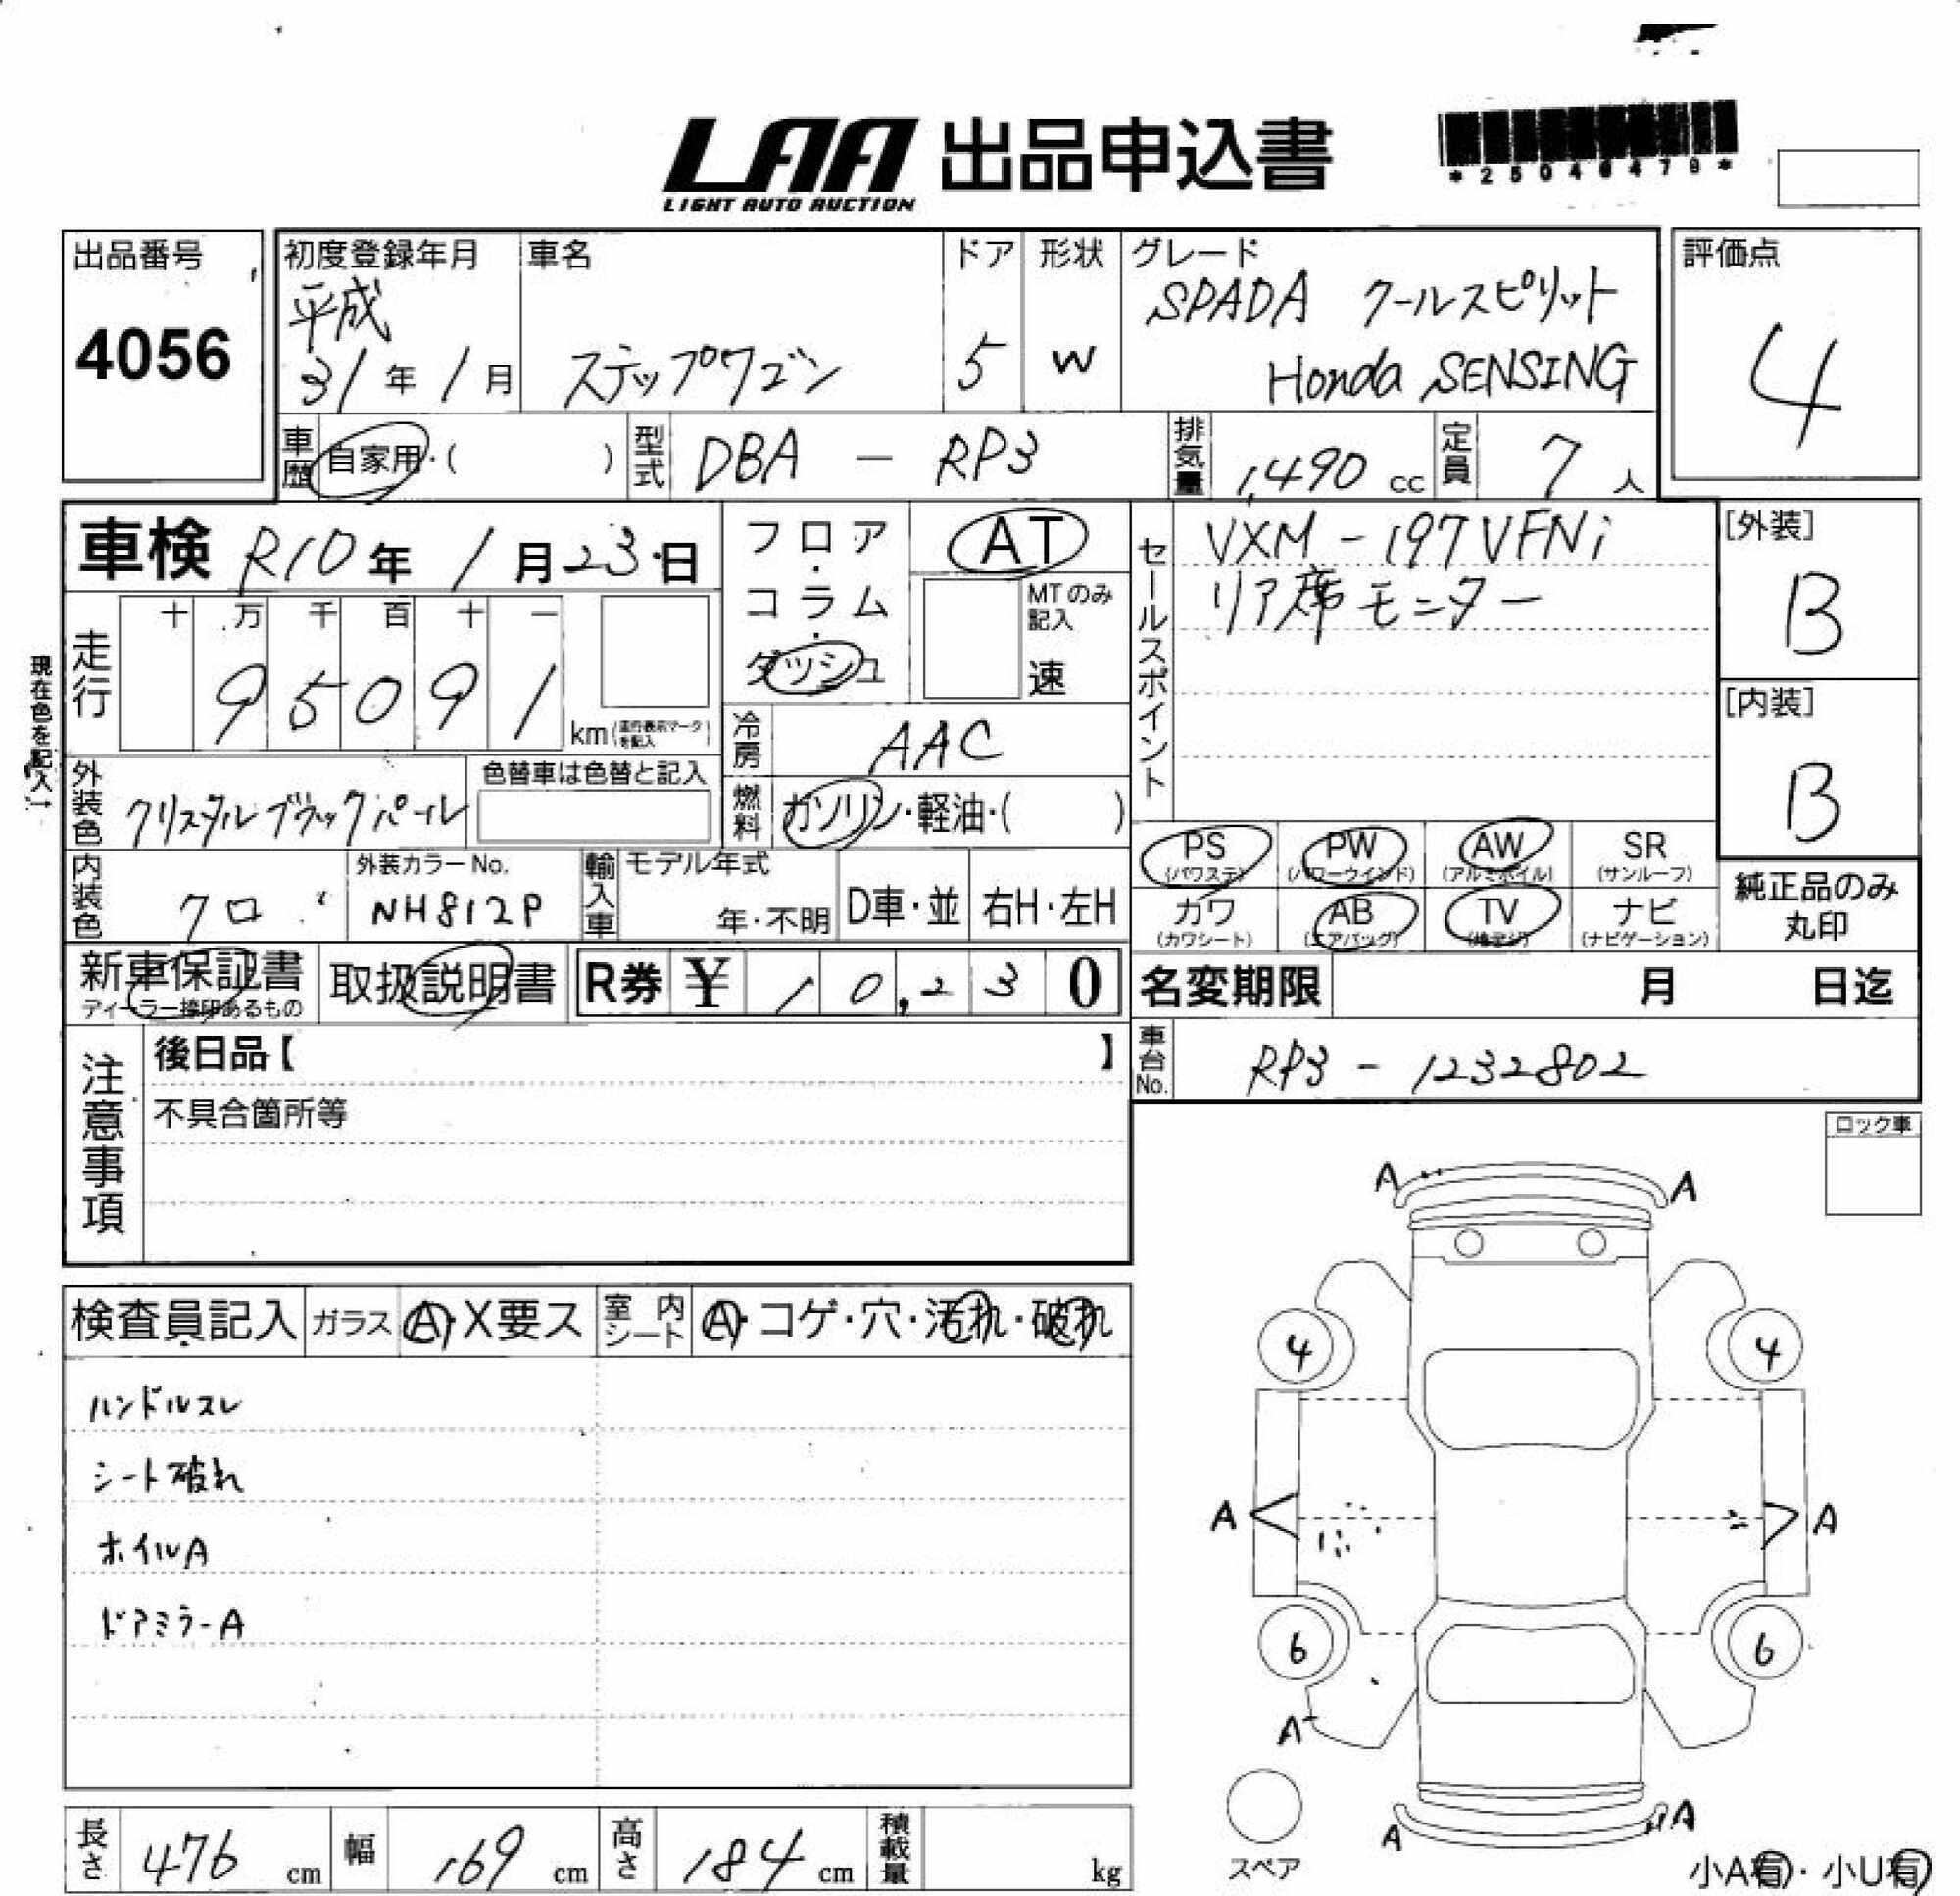 LAA 出品申込書
LIGHT AUTO AUCTION
出品番号
4056
初度登録年月
平成
31年1月
車名
ステップワゴン
ドア
5
形状
W
グレード
SPADA クールスピリット
Honda SENSING
評価点
4
車歴
自家用・( )
型式
DBA - RP3
排気量
1,490 cc
定員
7人
車検 R10年1月23日
フロア・コラム・ダッシュ
AT
MTのみ記入
速
セールスポイント
VXM-197VFNi
リア席モニター
[外装]
B
[内装]
B
現在色を記入→
走行
十 万 千 百 十 一
9 5 0 9 1
km(走行表示マークを記入)
冷房
AAC
外装色
クリスタルブラックパール
色替車は色替と記入
燃料
ガソリン・軽油・( )
PS
(パワステ)
PW
(パワーウインド)
AW
(アルミホイル)
SR
(サンルーフ)
カワ
(カワシート)
AB
(エアバッグ)
TV
(地デジ)
ナビ
(ナビゲーション)
純正品のみ丸印
内装色
クロ
外装カラーNo.
NH812P
輸入車
モデル年式
年・不明
D車・並
右H・左H
新車保証書
ディーラー捺印あるもの
取扱説明書
R券 ¥ 10,230
名変期限 月 日迄
注意事項
後日品【 】
不具合箇所等
車台No.
RP3-1232802
ロック車
検査員記入
ガラス
A・X要ス
室内シート
A・コゲ・穴・汚れ・破れ
ハンドルスレ
シート破れ
ホイルA
ドアミラーA
A
A
4
4
A
A
6
6
A
A
A
スペア
小A有・小U有
長さ
476 cm
幅
169 cm
高さ
184 cm
積載量
kg